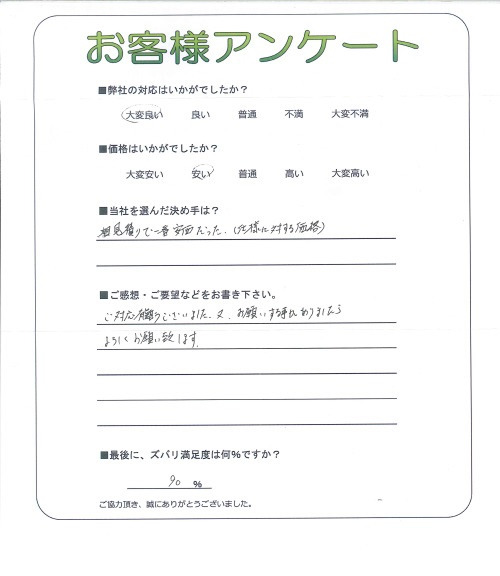 お客様アンケート
■弊社の対応はいかがでしたか？
大変良い 良い 普通 不満 大変不満
■価格はいかがでしたか？
大変安い 安い 普通 高い 大変高い
■当社を選んだ決め手は？
相見積りで一番安価だった。(仕様に対する価格)
■ご感想・ご要望などをお書き下さい。
ご対応有難うございました。又、お願いする事がありましたら
よろしくお願い致します。
■最後に、ズバリ満足度は何%ですか？
90 %
ご協力頂き、誠にありがとうございました。